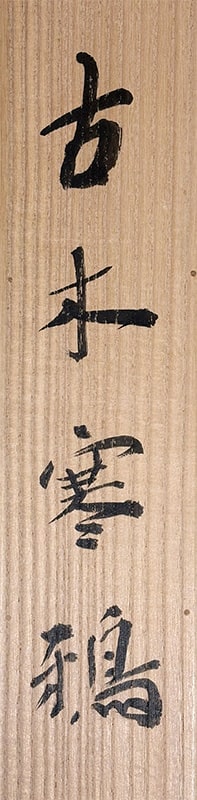 古木寒鴉